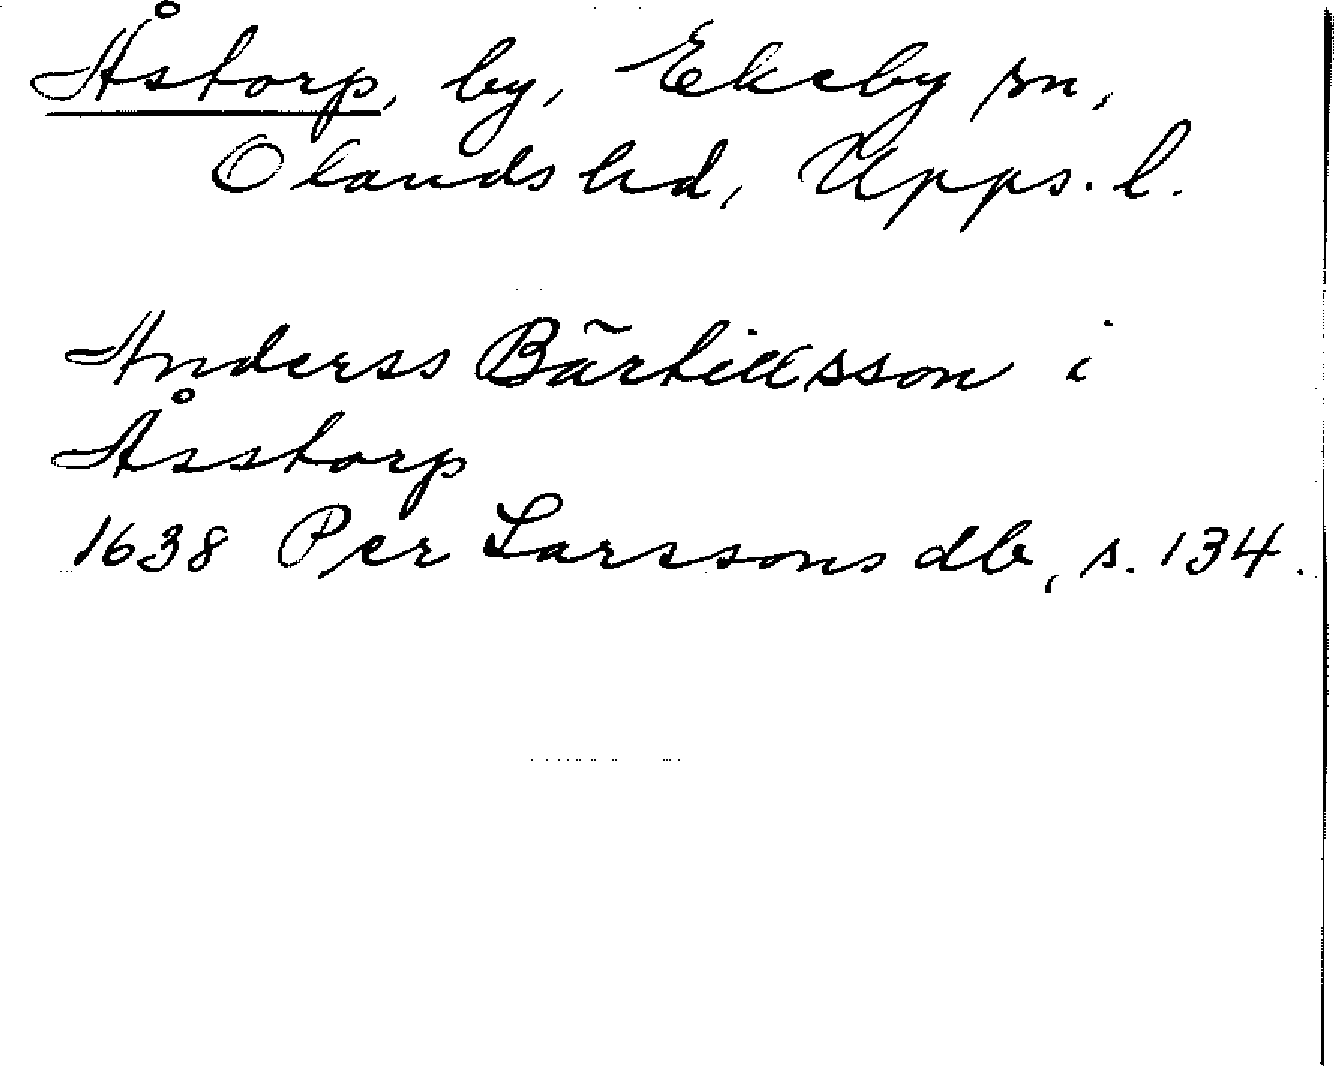 Åstorp, by, Ekeby sn,
Olands hd, Upps. l.
Anderss Bãrtillsson i
Åsstorp
1638 Per Larssons db, s. 134.